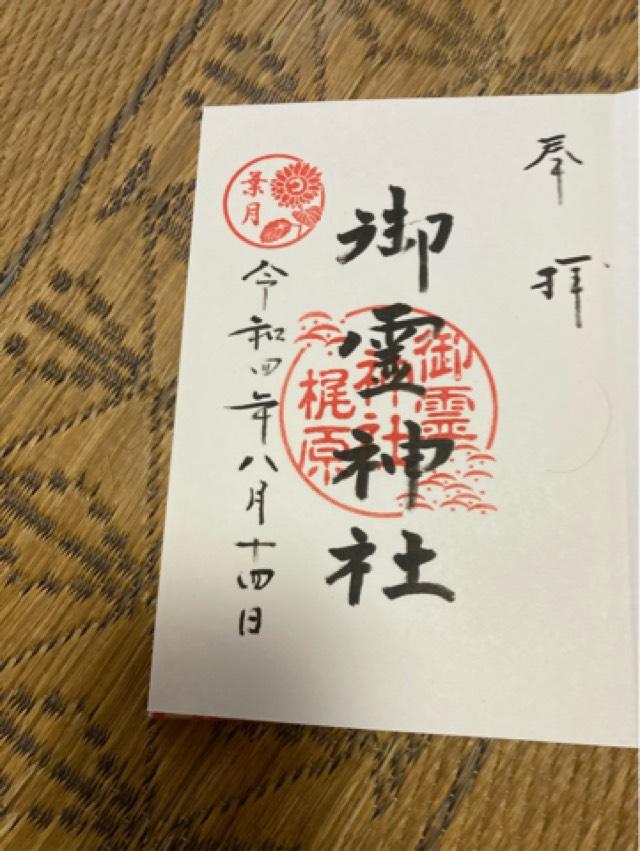 奉拝
御霊神社
御霊
神社
梶原
葉月
令和四年八月十四日